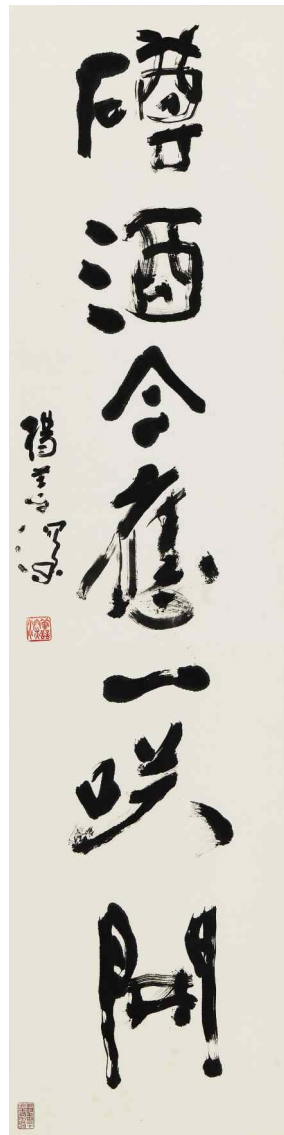 罇酒今應一咲開
楊善深